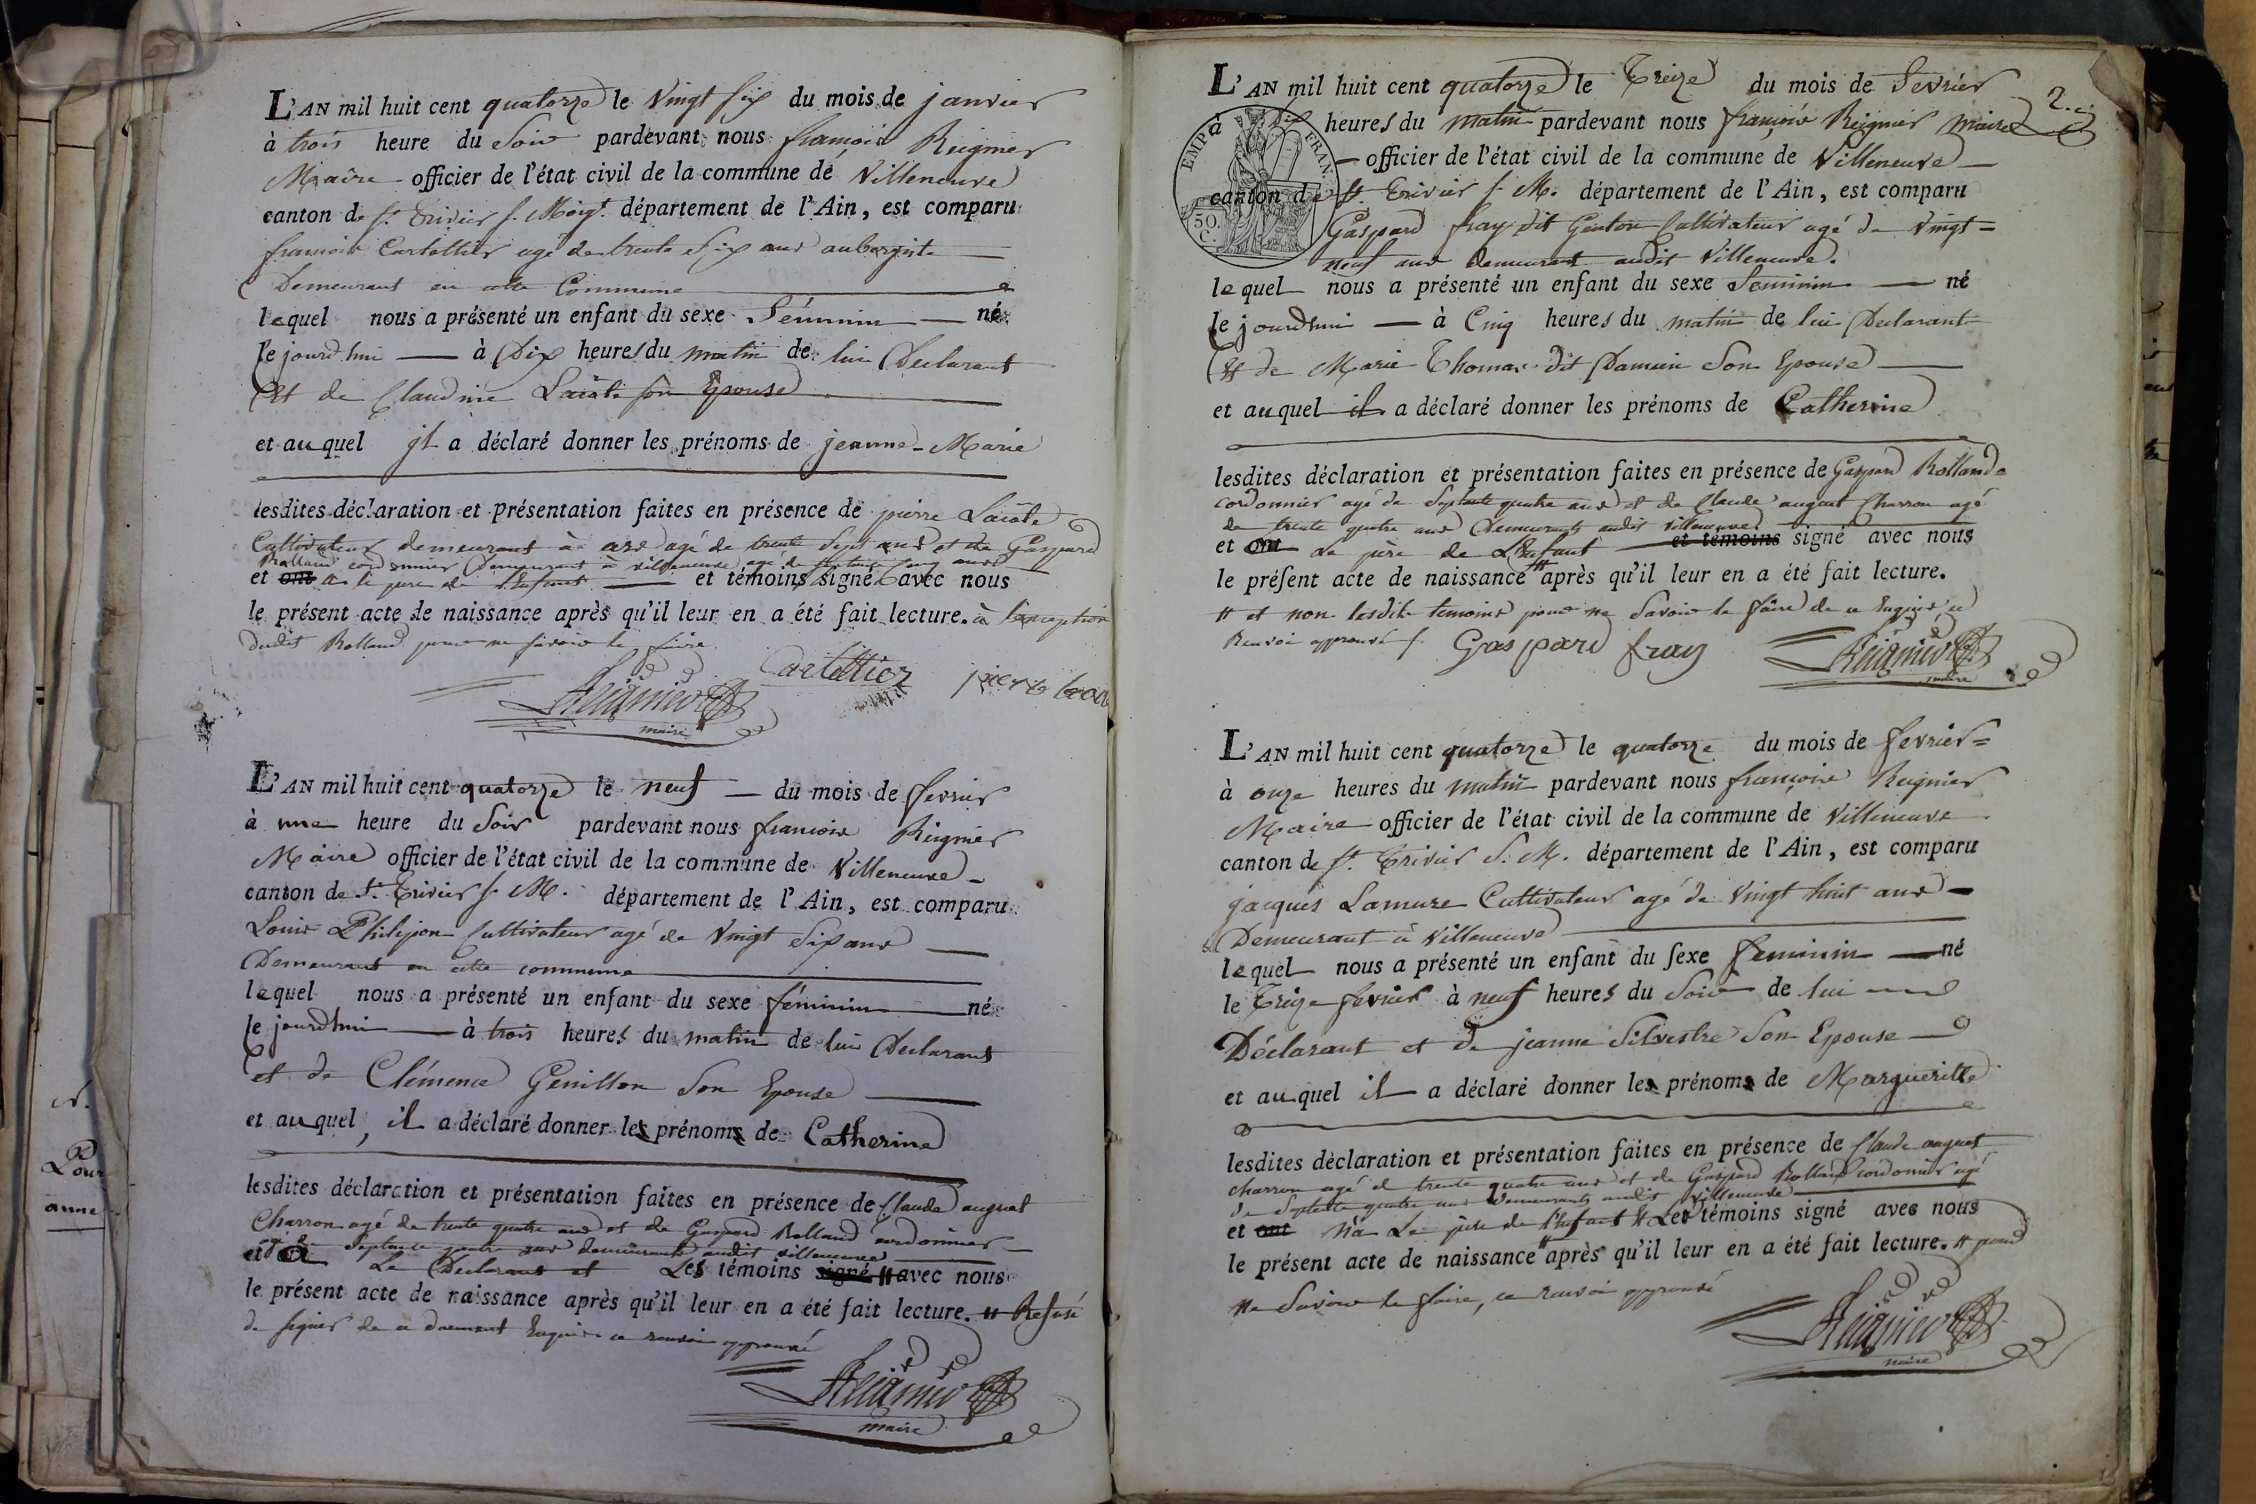 L'AN mil huit cent quatorze le Vingt six du mois de janvier
à trois heure du Soir pardevant nous françois Reignier
Maire officier de l'état civil de la commune de Villeneuve
canton de St. Trivier s. Moigt. département de l'Ain, est comparu
françois Cartellier agé de trente Six ans aubergiste
Demeurant en cette Commune
lequel nous a présenté un enfant du sexe Féminin né
le jourdhui à Dix heures du matin de lui Declarant
Et de Claudine son Epouse
et auquel jl a déclaré donner les prénoms de jeanne-Marie
lesdites déclaration et présentation faites en présence de pierre
Cultivateur demeurant à ars agé de trente Sept ans et de Gaspard
Rolland cordonnier Demeurant à villeneuve agé de ans
et ont le pere de l'Enfant et témoins signé avec nous
le présent acte de naissance après qu'il leur en a été fait lecture. à l'exception
dudit Rolland pour ne savoir le faire
Cartellier pierre
Reignier
maire
L'AN mil huit cent quatorze le neuf du mois de fevrier
à une heure du Soir pardevant nous francois Reignier
Maire officier de l'état civil de la commune de Villeneuve
canton de St. Trivier s. M. département de l'Ain, est comparu
Louis Philipon Cultivateur agé de Vingt Six ans
Demeurant en cette commune
lequel nous a présenté un enfant du sexe féminin né
le jourdhui à trois heures du matin de lui Declarant
et de Clémence Genillon Son Epouse
et auquel il a déclaré donner les prénoms de Catherine
lesdites déclaration et présentation faites en présence de Claude augout
Charron agé de trente quatre ans et de Gaspard Rolland cordonnier
agé de Septante quatre ans demeurants audit villeneuve
et a Le Declarant et Les témoins signé avec nous
le présent acte de naissance après qu'il leur en a été fait lecture. # Refusé
de signer de ce Enquis ce renvoi approuvé
Reignier
maire
2.
L'AN mil huit cent quatorze le Treize du mois de Fevrier
à dix heures du matin pardevant nous françois Reignier maire
officier de l'état civil de la commune de Villeneuve
canton de St. Trivier s. M. département de l'Ain, est comparu
EMP. FRAN.
50. C.
Gaspard fray dit Cultivateur agé de Vingt=
neuf ans demeurant audit Villeneuve.
lequel nous a présenté un enfant du sexe Feminin né
le jourdhui à Cinq heures du matin de lui Declarant
Et de Marie Thomas dit Damien Son Epouse
et auquel il a déclaré donner les prénoms de Catherine
lesdites déclaration et présentation faites en présence de Gaspard Rolland
cordonnier agé de Septante quatre ans et de Claude augout Charron agé
de trente quatre ans Demeurants audit villeneuve
et ont Le père de L'Enfant et témoins signé avec nous
le présent acte de naissance # après qu'il leur en a été fait lecture.
# et non lesdits temoins pour ne Savoir le faire de ce Enquis ce
Renvoi approuvé Gaspard fray
Reignier
maire
L'AN mil huit cent quatorze le quatorze du mois de fevrier=
à onze heures du matin pardevant nous françois Reignier
Maire officier de l'état civil de la commune de Villeneuve
canton de St. Trivier S. M. département de l'Ain, est comparu
jacques Lamure Cultivateur agé de Vingt huit ans
Demeurant à Villeneuve
lequel nous a présenté un enfant du sexe feminin né
le Treize fevrier à neuf heures du Soir de lui
Déclarant et de jeanne Silvestre Son Epouse
et auquel il a déclaré donner les prénoms de Margueritte
lesdites déclaration et présentation faites en présence de Claude augout
charron agé d trente quatre ans et de Gaspard Rolland cordonnier agé
de Septante quatre ans Demeurants audit Villeneuve
et ont na Le père de l'Enfant Les témoins signé avec nous
le présent acte de naissance # après qu'il leur en a été fait lecture. # pour
ne Savoir le faire, ce renvoi approuvé
Reignier
maire